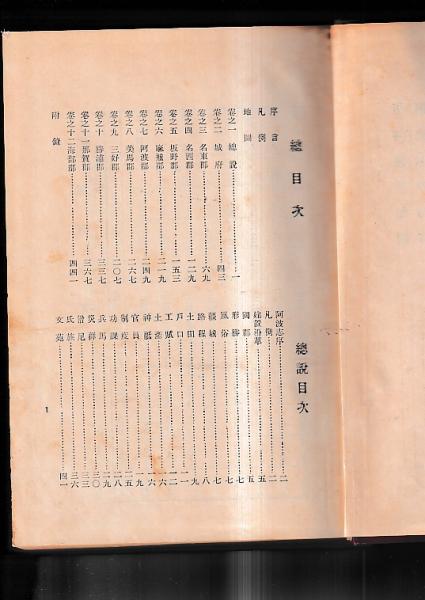 總目次
序言
凡例
地圖
卷之一 總説……一
卷之二 城府……四三
卷之三 名東郡……六九
卷之四 名西郡……一二九
卷之五 板野郡……一五三
卷之六 麻殖郡……二一九
卷之七 阿波郡……二四九
卷之八 美馬郡……二六七
卷之九 三好郡……二〇七
卷之十 勝浦郡……三三七
卷之十一 那賀郡……三六七
卷之十二 海部郡……四四一
附錄
總説目次
阿波志序……二
凡例……二
建置沿革……五
國郡……五
形勝……七
風俗……七
路程……八
土田……九
戶口……一一
工賦……一二
土產……一六
神祇……一六
官員……一九
制度……二五
功課……二八
兵馬……二九
災祥……三〇
僧尼……三三
氏族……三六
文苑……四一
1